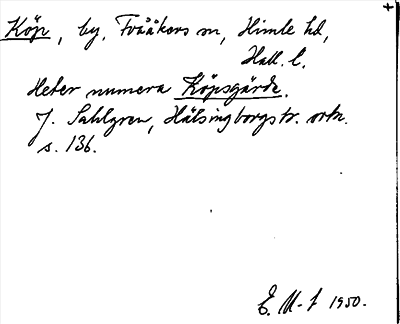 Köp, by, Tvååkers sn, Himle hd,
Hall. l.
Heter numera Köpsgärde.
J. Sahlgren, Hälsingborgstr. ortn.
s. 136.
E. M-t 1950.